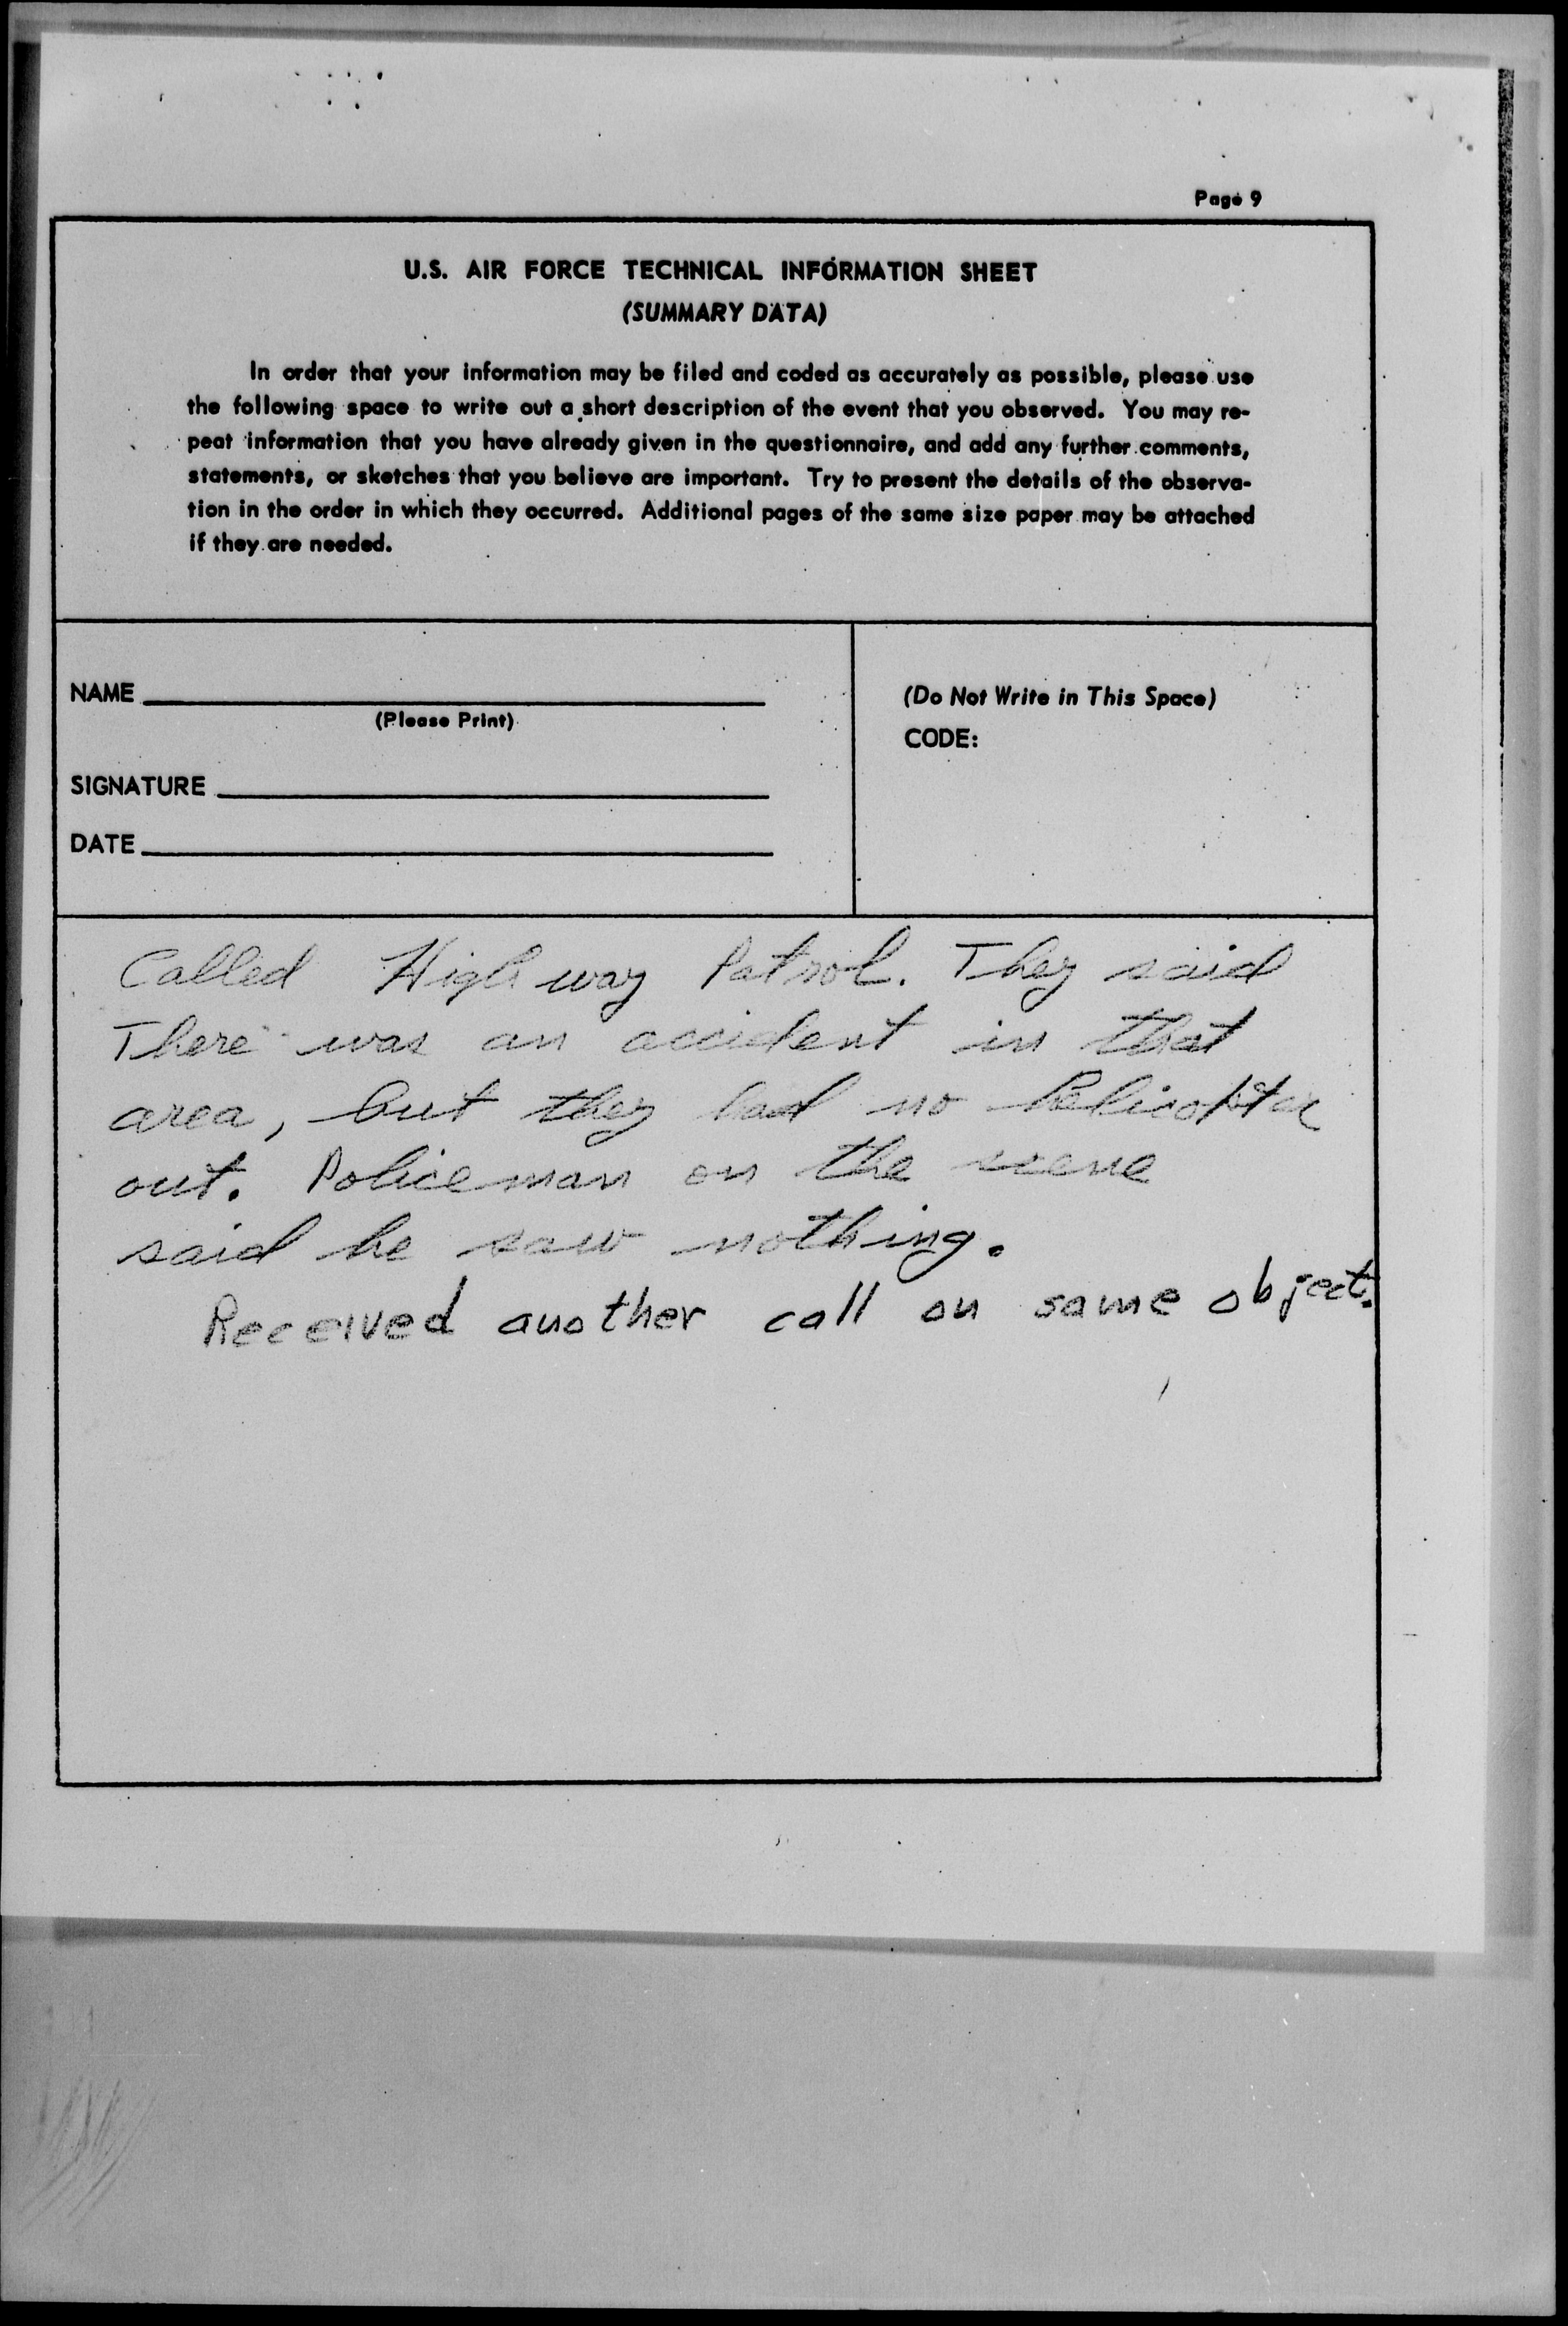 Page 9
U.S. AIR FORCE TECHNICAL INFORMATION SHEET
(SUMMARY DATA)
In order that your information may be filed and coded as accurately as possible, please use
the following space to write out a short description of the event that you observed. You may re-
peat information that you have already given in the questionnaire, and add any further comments,
statements, or sketches that you believe are important. Try to present the details of the observa-
tion in the order in which they occurred. Additional pages of the same size paper may be attached
if they are needed.
NAME
(Please Print)
SIGNATURE
DATE
(Do Not Write in This Space)
CODE:
Called Highway Patrol. They said
There was an accident in that
area, but they had no helicopter
out. Policeman on the scene
said he saw nothing.
Received another call on same object.